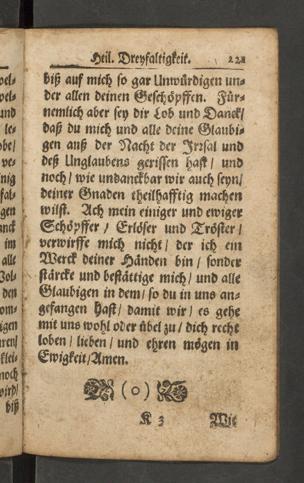 Heil. Dreyfaltigkeit. 221
biß auf mich so gar Unwürdigen un-
der allen deinen Geschöpffen. Für-
nemlich aber sey dir Lob und Danck/
daß du mich und alle deine Glaubi-
gen auß der Nacht der Irrsal und
deß Unglaubens gerissen hast/ und
noch/ wie undanckbar wir auch seyn/
deiner Gnaden theilhafftig machen
wilst. Ach mein einiger und ewiger
Schöpffer/ Erlöser und Tröster/
verwirffe mich nicht/ der ich ein
Werck deiner Händen bin/ sonder
stärcke und bestättige mich/ und alle
Glaubigen in dem/ so du in uns an-
gefangen hast/ damit wir/ es gehe
mit uns wohl oder übel zu/ dich recht
loben/ lieben/ und ehren mögen in
Ewigkeit/ Amen.
(o)
K 3 Wie